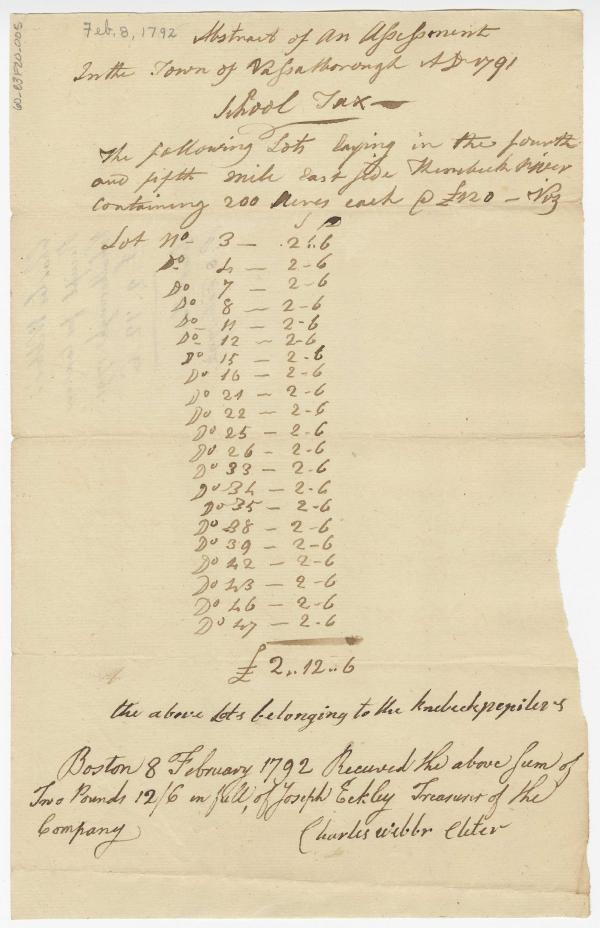 60-83F20.005
Feb. 8, 1792
Abstract of An Assessment
In the Town of Vassalborough AD 1791
School Tax
The following Lots laying in the fourth
and fifth mile East Side River
Containing 200 Acres each @ £120 - Viz
S D
Lot No. 3 - 2.6
Do 4 - 2-6
Do 7 - 2-6
Do 8 - 2-6
Do 11 - 2-6
Do 12 - 2-6
Do 15 - 2-6
Do 16 - 2-6
Do 21 - 2-6
Do 22 - 2-6
Do 25 - 2-6
Do 26 - 2-6
Do 33 - 2-6
Do 34 - 2-6
Do 35 - 2-6
Do 38 - 2-6
Do 39 - 2-6
Do 42 - 2-6
Do 43 - 2-6
Do 46 - 2-6
Do 47 - 2-6
£ 2..12..6
the above Lots belonging to the
Boston 8 February 1792 Received the above Sum of
Two Pounds 12/6 in full, of Joseph Eckley Treasurer of the
Company
Charles